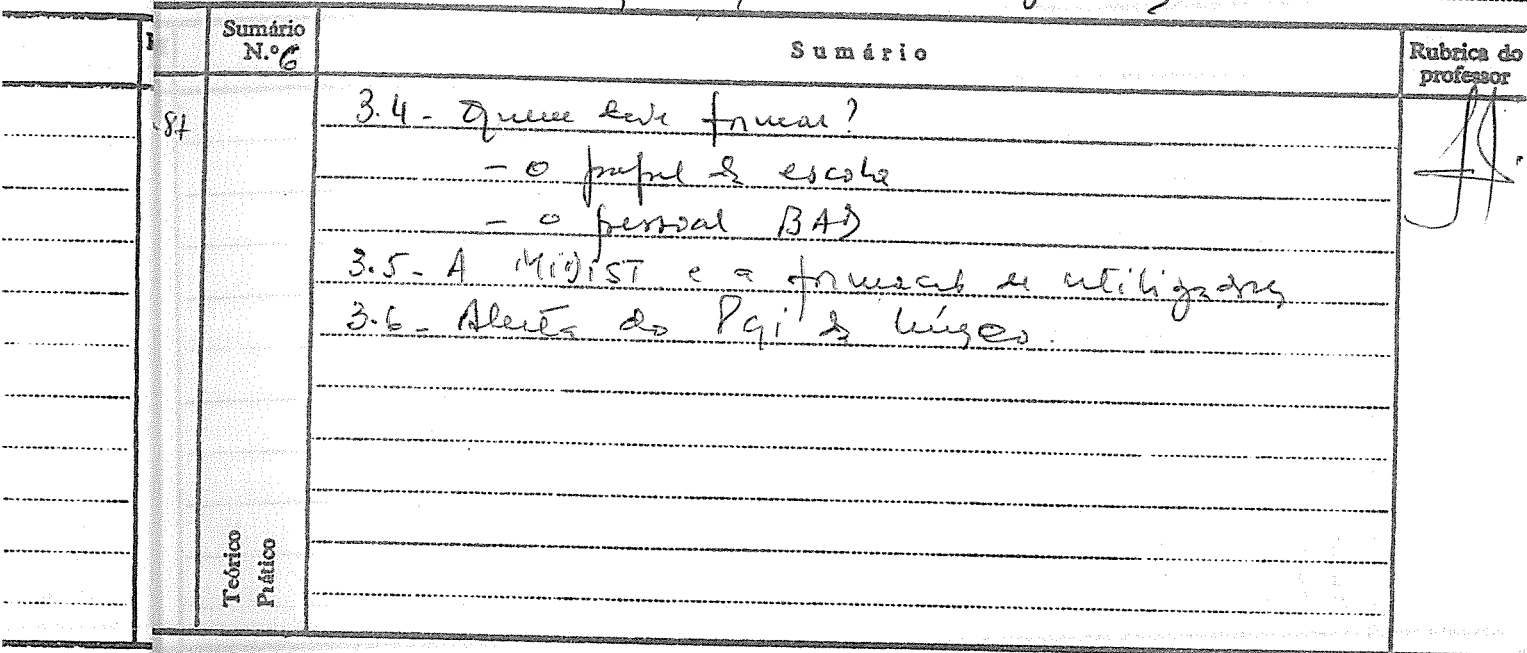 Sumário
N.º 6
Sumário
Rubrica do
professor
3.4 - Quem deve formar?
- o papel da escola
- o pessoal BAD
3.5 - A MIDIST e a formação de utilizadores
3.6 - do PGI da
Teórico
Prático